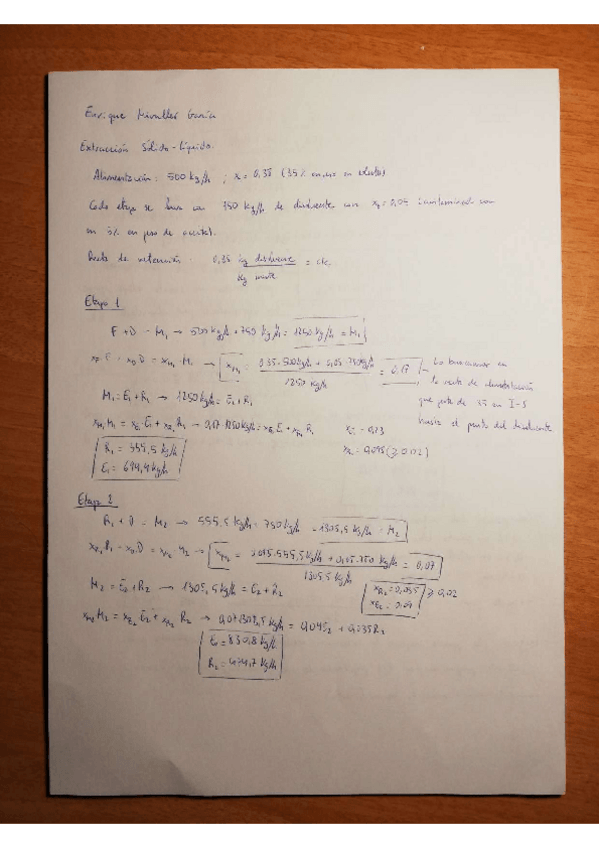 Enrique Miralles García
Extracción Sólido-Líquido.
Alimentación: 500 kg/h ; x = 0,35 (35% en peso en aceite)
Cada etapa se lava con 750 kg/h de disolvente con x = 0,05 (contaminado con
un 5% en peso de aceite).
Recta de retención: 0,35 kg disolvente / kg inerte = cte.
Etapa 1
F + D = M₁ → 500 kg/h + 750 kg/h = 1250 kg/h = M₁
x_F·F - x_D·D = x_M₁·M₁ → x_M₁ = (0,35·500 kg/h + 0,05·750 kg/h) / 1250 kg/h = 0,17 → Lo buscamos en
la recta de
que parte de 35 en I-S
hasta el punto del disolvente
M₁ = E₁ + R₁ → 1250 kg/h = E₁ + R₁
x_M₁·M₁ = x_E₁·E₁ + x_R₁·R₁ → 0,17·1250 kg/h = x_E₁·E₁ + x_R₁·R₁
x_E₁ = 0,23
x_R₁ = 0,095 (≥ 0,02)
R₁ = 555,5 kg/h
E₁ = 694,4 kg/h
Etapa 2
R₁ + D = M₂ → 555,5 kg/h + 750 kg/h = 1305,5 kg/h = M₂
x_R₁·R₁ - x_D·D = x_M₂·M₂ → x_M₂ = (0,095·555,5 kg/h + 0,05·750 kg/h) / 1305,5 kg/h = 0,07
M₂ = E₂ + R₂ → 1305,5 kg/h = E₂ + R₂
x_R₂ = 0,035 ≥ 0,02
x_E₂ = 0,09
x_M₂·M₂ = x_E₂·E₂ + x_R₂·R₂ → 0,07·1305,5 kg/h = 0,09E₂ + 0,035R₂
E₂ = 830,8 kg/h
R₂ = 474,7 kg/h